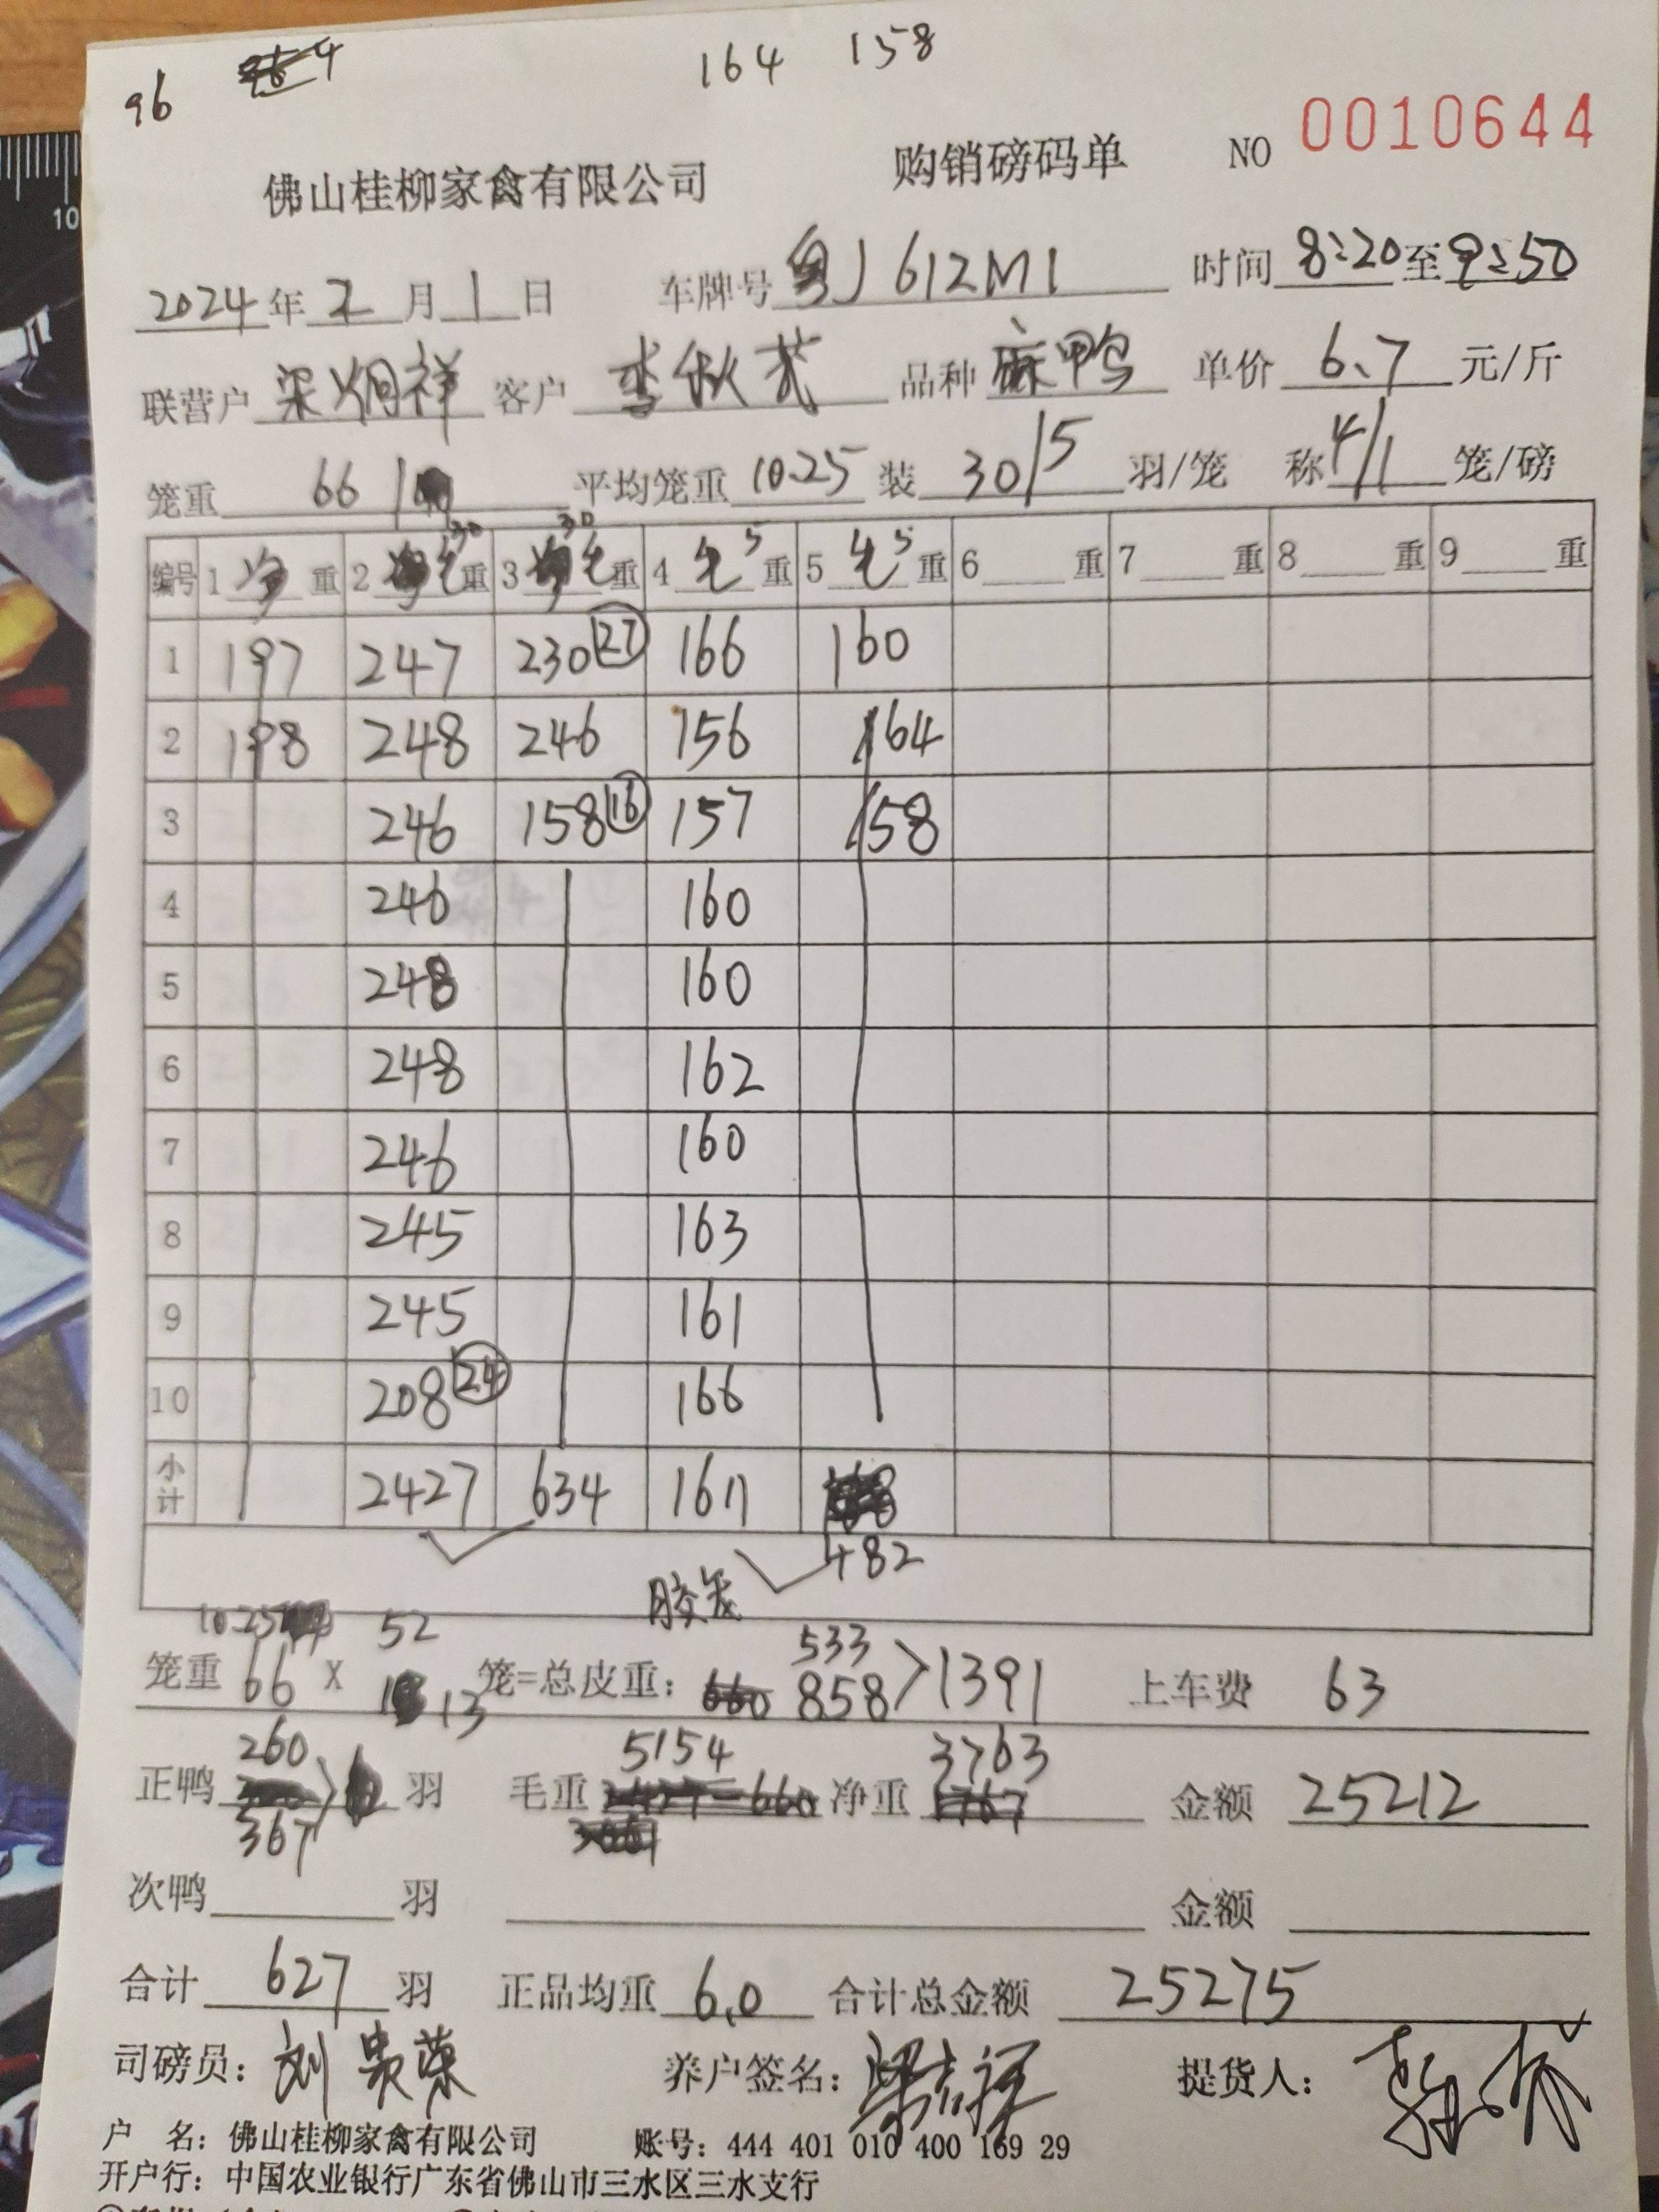 96 164 158
佛山桂柳家禽有限公司 购销磅码单 NO 0010644
2024年 2 月 1 日 车牌号 粤J612M1 时间 8:20至9:50
联营户 梁炯祥 客户 李秋 品种 麻鸭 单价 6.7 元/斤
笼重 66 平均笼重 10.25 装 30/5 羽/笼 称 4/1 笼/磅
30 30 5 5
编号 1 净 重 2 毛 重 3 毛 重 4 毛 重 5 毛 重 6 重 7 重 8 重 9 重
1 197 247 230 27 166 160
2 198 248 246 156 164
3 246 158 16 157 158
4 246 160
5 248 160
6 248 162
7 246 160
8 245 163
9 245 161
10 208 24 166
小计 2427 634 1611
胶笼 482
10.25 52 533
笼重 66 X 13 笼=总皮重: 660 858 >1391 上车费 63
260 5154 3763
正鸭 羽 毛重 2427-660 净重 1767 金额 25212
367 3061
次鸭 羽 金额
合计 627 羽 正品均重 6.0 合计总金额 25275
司磅员: 刘贵荣 养户签名: 提货人:
户 名: 佛山桂柳家禽有限公司 账号: 444 401 010 400 169 29
开户行: 中国农业银行广东省佛山市三水区三水支行